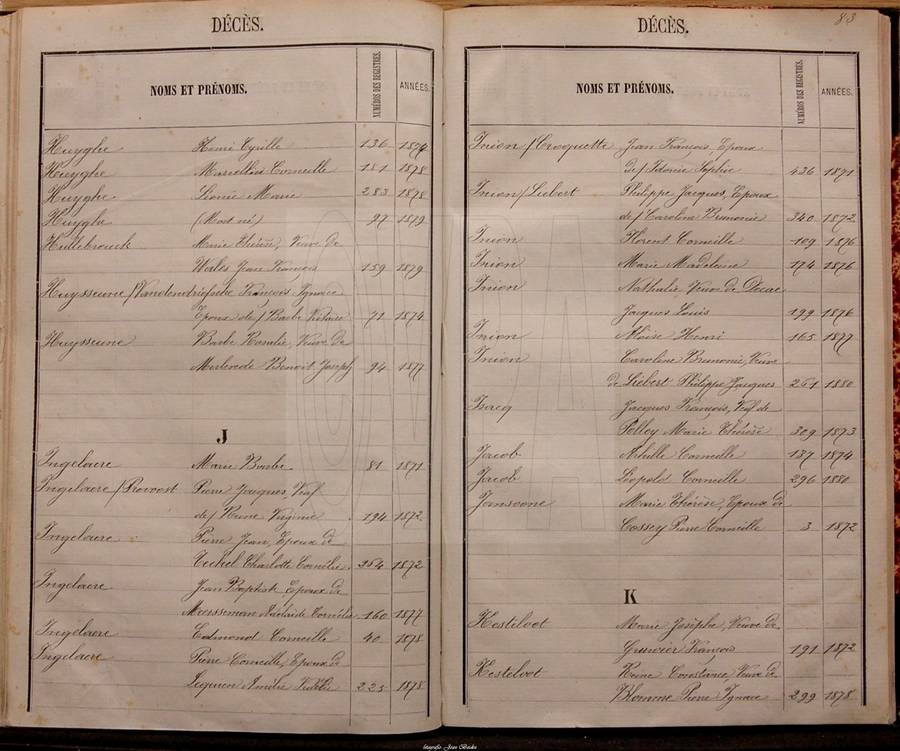 DÉCÈS.
NOMS ET PRÉNOMS. NUMÉROS DES REGISTRES. ANNÉES.
Huyghe Henri Cyrille 136 1874
Huyghe Marcellin Corneille 181 1878
Huyghe Léonie Marie 283 1878
Huyghe (Mort né) 97 1879
Hullebrouck Marie Thérèse, Veuve de
Wales Jean François 159 1879
Huysseune/Vandendriessche François Ignace
Epoux de/Barbe Victoire 71 1874
Huysseune Barbe Rosalie, Veuve de
Benoit Joseph 94 1877
J
Ingelaere Marie Barbe 81 1871
Ingelaere/Provoost Pierre Jacques, Veuf
de/Reine Virginie 194 1872
Ingelaere Pierre Jean, Epoux de
Charlotte Cornélie 364 1872
Ingelaere Jean Baptiste, Epoux de
Meesseman Adélaïde Cornélie 160 1877
Ingelaere Edmond Corneille 40 1878
Ingelaere Pierre Corneille, Epoux de
Lequien Amélie 225 1878
DÉCÈS. 83
NOMS ET PRÉNOMS. NUMÉROS DES REGISTRES. ANNÉES.
Inion/Croquette Jean François, Epoux
de/Idonie Sophie 436 1871
Inion/Liebert Philippe Jacques, Epoux
de/Caroline Brunonie 340 1872
Inion Florent Corneille 109 1876
Inion Marie Madeleine 174 1876
Inion Nathalie Veuve de Decae
Jacques Louis 199 1876
Inion Aloïse Henri 165 1877
Inion Caroline Brunonie, Veuve
de Liebert Philippe Jacques 261 1880
Isacq Jacques François, Veuf de
Polley Marie Thérèse 309 1873
Jacob Achille Corneille 137 1874
Jacob Léopold Corneille 296 1880
Jansoone Marie Thérèse, Epouse de
Cossey Pierre Corneille 3 1872
K
Kesteloot Marie Josèphe, Veuve de
Grunvier François 191 1872
Kesteloot Reine Constance, Veuve de
Pierre Ignace 299 1878
fotografie Jean Beckx